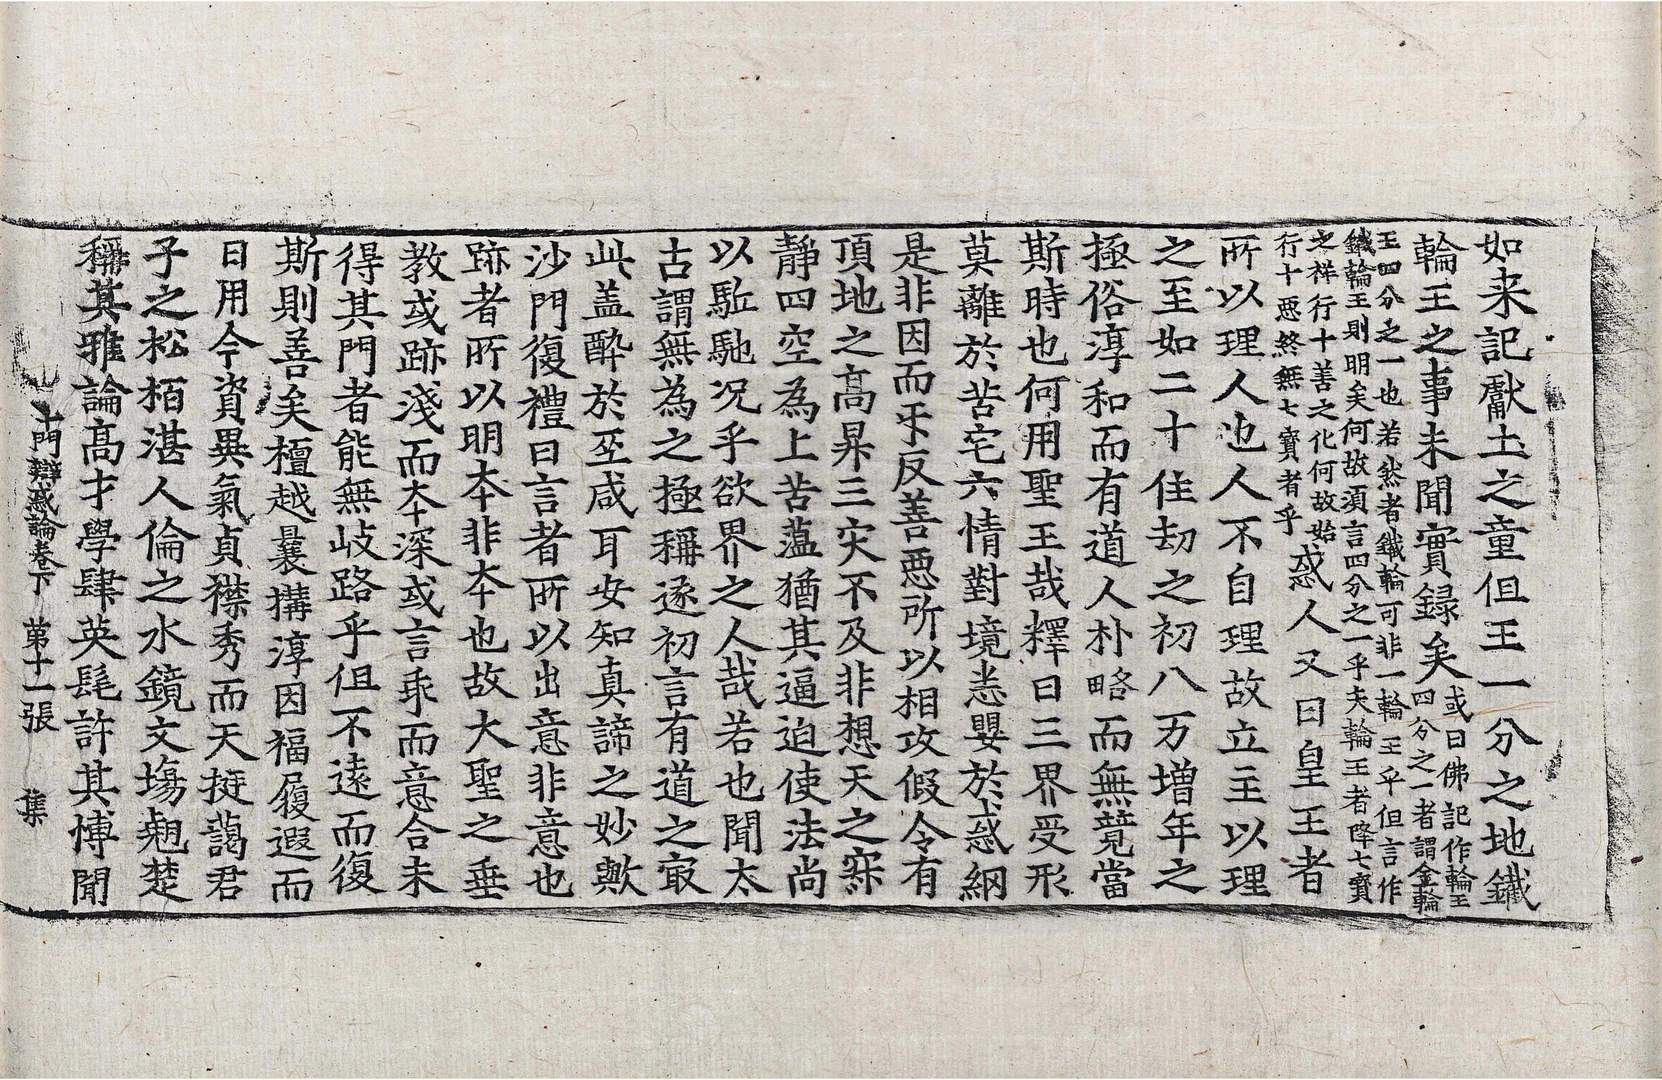 如来記獻土之童但王一分之地鐵
輪王之事未聞實録矣或曰佛記作輪王四分之一者謂金輪
王四分之一也若然者鐵輪可非一輪王乎但言作鐵輪王則明矣何故湏言四分之一乎夫輪王者降七寶
之祥行十善之化何故始行十惡終無七寶者乎惑人又曰皇王者
所以理人也人不自理故立主以理
之至如二十住劫之初八万增年之
極俗淳和而有道人朴略而無競當
斯時也何用聖王哉釋曰三界受形
莫離於苦宅六情對境恙嬰於惑網
是非因而乎反善惡所以相攻假令有
頂地之高昇三灾不及非想天之寂
靜四空為上苦蕰猶其逼迫使法尚
以駈馳况乎欲界之人哉若也聞太
古謂無為之極稱逐初言有道之㝡
此盖酔於至咸耳安知真諦之妙歟
沙門復禮曰言者所以出意非意也
跡者所以明夲非夲也故大聖之垂
教或跡淺而夲深或言乖而意合未
得其門者能無岐路乎但不遠而復
斯則善矣檀越曩搆淳因福履遐而
日用今資異氣貞襟秀而天挺藹君
子之松栢湛人倫之水鏡文塲翹楚
稱其雅論高才學肆英髦許其愽聞
十門辯惑論卷下　第十一張　集